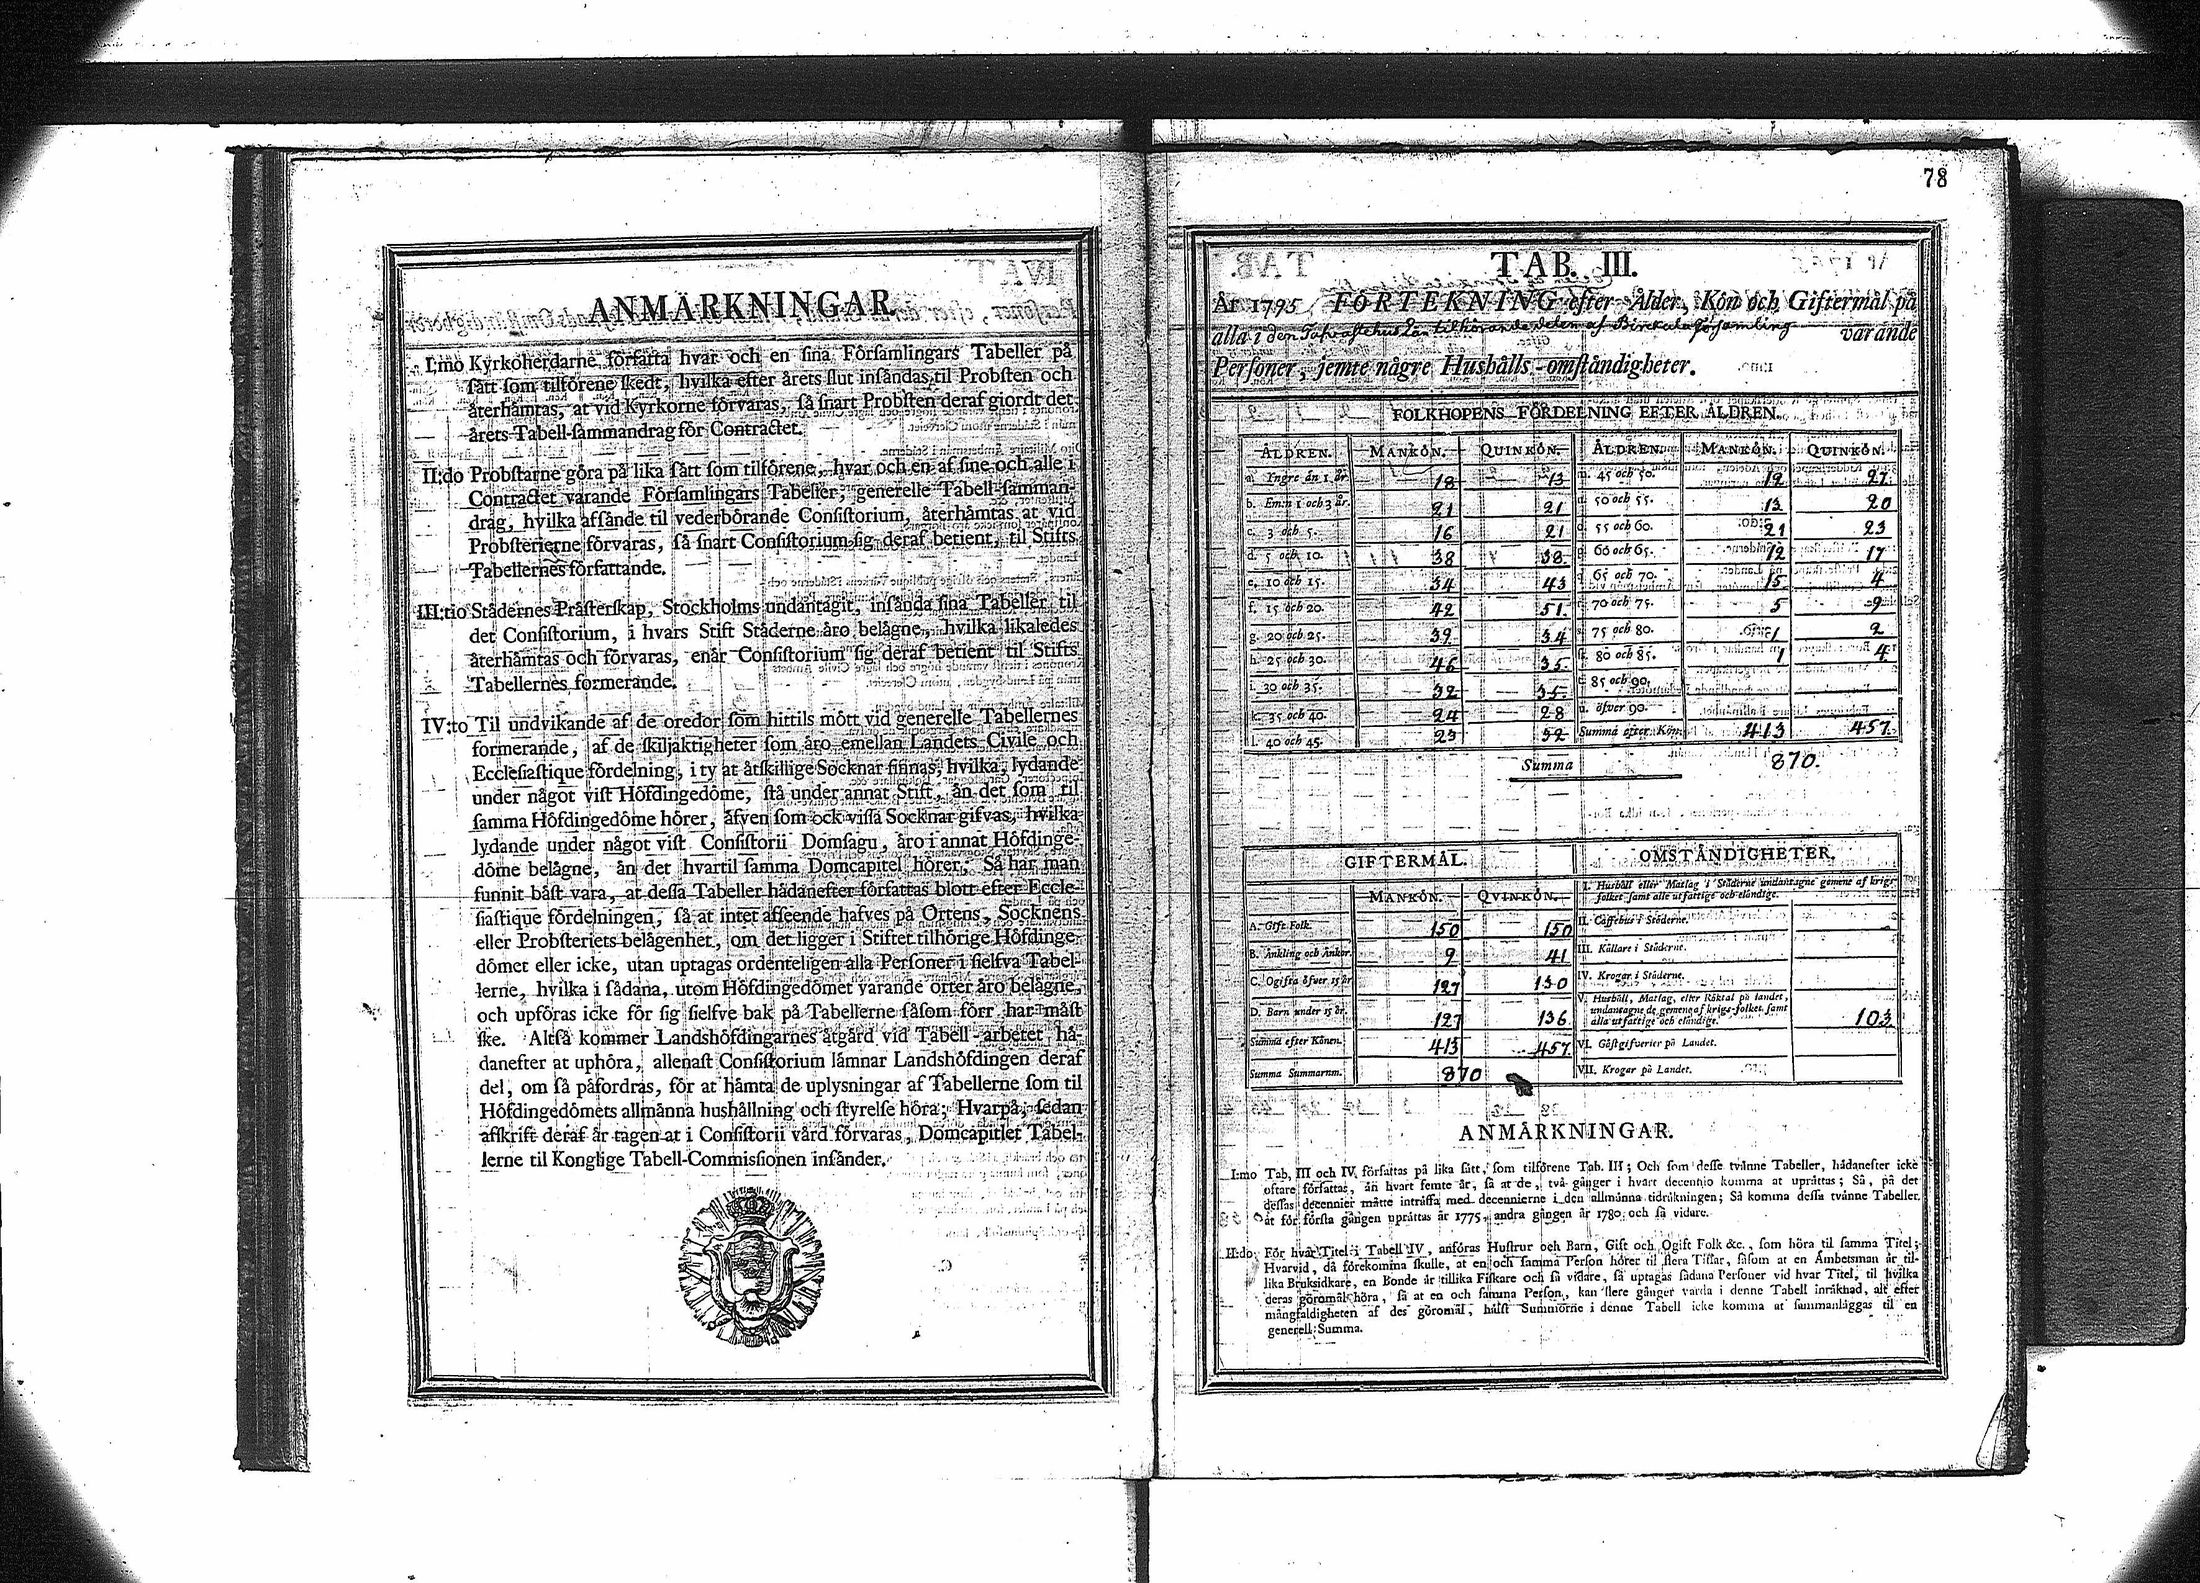 ANMÄRKNINGAR.
I:mo Kyrkoherdarne författa hvar och en sina Församlingars Tabeller på
sått som tilförene skedt, hvilka efter årets slut insåndas til Probsten och
återhåmtas, at vid Kyrkorne förvaras, så snart Probsten deraf giordt det
årets Tabell-sammandrag för Contractet.
II:do Probstarne göra på lika sått som tilförene, hvar och en af sine och alle i
Contractet varande Församlingars Tabeller, generelle Tabell-samman-
drag, hvilka afsånde til vederbörande Consistorium, återhåmtas at vid
Probsterierne förvaras, så snart Consistorium sig deraf betient, til Stifts
Tabellernes författande.
III:tio Städernes Pråsterskap, Stockholms undantagit, insånda sina Tabeller til
det Consistorium, i hvars Stift Ståderne åro belågne, hvilka likaledes
återhåmtas och förvaras, enår Consistorium sig deraf betient til Stifts
Tabellernes formerande.
IV:to Til undvikande af de oredor som hittils mött vid generelle Tabellernes
formerande, af de skiljaktigheter som åro emellan Landets Civile och
Ecclesiastique fördelning, i ty at åtskillige Socknar finnas, hvilka, lydande
under något vist Höfdingedöme, stå under annat Stift, ån det som til
samma Höfdingedöme hörer, åfven som ock vissa Socknar gifvas, hvilka
lydande under något vist Consistorii Domsagu, åro i annat Höfdinge-
döme belågne, ån det hvartil samma Domcapitel hörer. Så har man
funnit båst vara, at dessa Tabeller hådanefter författas blott efter Eccle-
siastique fördelningen, så at intet afseende hafves på Ortens, Socknens
eller Probsteriets belågenhet, om det ligger i Stiftet tilhörige Höfdinge-
dömet eller icke, utan uptagas ordenteligen alla Personer i sielfva Tabel-
lerne, hvilka i sådana, utom Höfdingedömet varande orter åro belågne,
och upföras icke för sig sielfve bak på Tabellerne såsom förr har måst
ske. Altså kommer Landshöfdingarnes åtgård vid Tabell-arbetet hå-
danefter at uphöra, allenast Consistorium låmnar Landshöfdingen deraf
del, om så påfordras, för at håmta de uplysningar af Tabellerne som til
Höfdingedömets allmånna hushållning och styrelse höra; Hvarpå, sedan
afskrift deraf år tagen at i Consistorii vård förvaras, Domcapitlet Tabel-
lerne til Konglige Tabell-Commissionen insånder.
78
TAB. III.
År 1795 FÖRTEKNING efter Ålder, Kön och Giftermål på
alla i den Tavastehus Län tilhörande delen af Birckala församling varande
Personer, jemte någre Hushålls-omständigheter.
FOLKHOPENS FÖRDELNING EFTER ÅLDREN.
ÅLDREN. MANKÖN. QUINKÖN. ÅLDREN. MANKÖN. QUINKÖN.
a. Yngre än 1 år. 18 13 m. 45 och 50. 12 27
b. Em:n 1 och 3 år. 21 21 n. 50 och 55. 13 20
c. 3 och 5. 16 21 o. 55 och 60. 21 23
d. 5 och 10. 38 38 p. 60 och 65. 12 17
e. 10 och 15. 34 43 q. 65 och 70. 15 4
f. 15 och 20. 42 51. r. 70 och 75. 5 9
g. 20 och 25. 39 34 s. 75 och 80. 1 2
h. 25 och 30. 46 35 80 och 85. 1 4
i. 30 och 35. 32 35 85 och 90.
k. 35 och 40. 24 28 u. öfver 90.
l. 40 och 45. 23 32 Summa efter Kön. 413 457.
Summa 870.
GIFTERMÅL. OMSTÄNDIGHETER.
MANKÖN. QVINKÖN. I. Hushåll eller Matlag i Städerne undantagne gemene af krigs-
folket samt alle utfattige och eländige.
A. Gift Folk. 150 150 II. Caffehus i Städerne.
B. Änkling och Änkor. 9 41 III. Källare i Städerne.
C. Ogifta öfver 15 år 127 130 IV. Krogar i Städerne.
D. Barn under 15 år. 127 136 V. Hushåll, Matlag, eller Röktal på landet,
undantagne de gemene af krigs-folket samt
alla utfattige och eländige. 103
Summa efter Könen. 413 457 VI. Gästgifverier på Landet.
Summa Summarum. 870 VII. Krogar på Landet.
ANMÄRKNINGAR.
I:mo Tab. III och IV, författas på lika sått, som tilförene Tab. III; Och som desse tvånne Tabeller, hådanefter icke
oftare författas, ån hvart femte år, så at de, två gånger i hvart decennio komma at upråttas; Så, på det
dessas decennier måtte intråffa med decennierne i den allmånna tidråkningen; Så komma dessa tvånne Tabeller
at för första gången upråttas år 1775, andra gången år 1780, och så vidare.
II:do För hvar Titel i Tabell IV, anföras Hustrur och Barn, Gift och Ogift Folk &c., som höra til samma Titel;
Hvarvid, då förekomma skulle, at en och samma Person hörer til flera Titlar, såsom at en Ämbetsman år til-
lika Bruksidkare, en Bonde år tillika Fiskare och så vidare, så uptagas sådana Personer vid hvar Titel, til hvilka
deras göromål höra, så at en och samma Person, kan flere gånger varda i denne Tabell inråknad, alt efter
mångfaldigheten af des göromål, hålst Summorne i denne Tabell icke komma at summanlåggas til en
generell Summa.